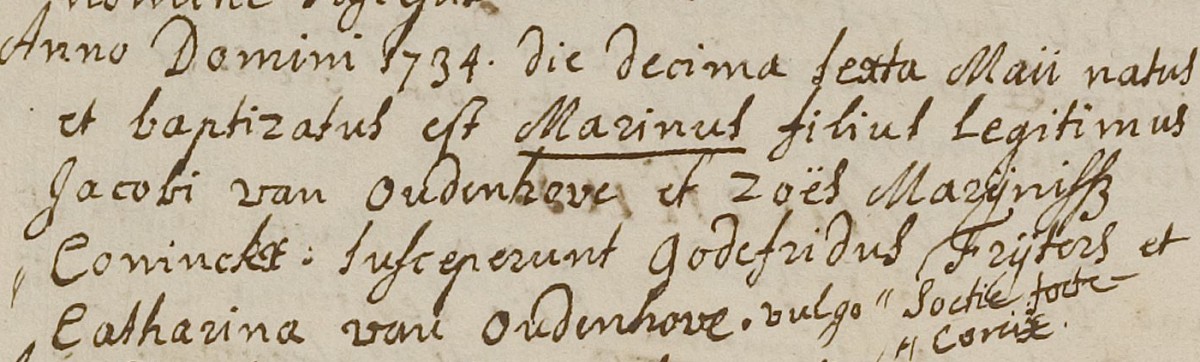 Anno Domini 1734. die decima sexta Maii natus
et baptizatus est Marinus filius legitimus
Jacobi van Oudenhove et Zoës Marÿnissz
" Coninckx : susceperunt Godefridus Frÿters et
Catharina van Oudenhove. vulgo " Soctie forte
"